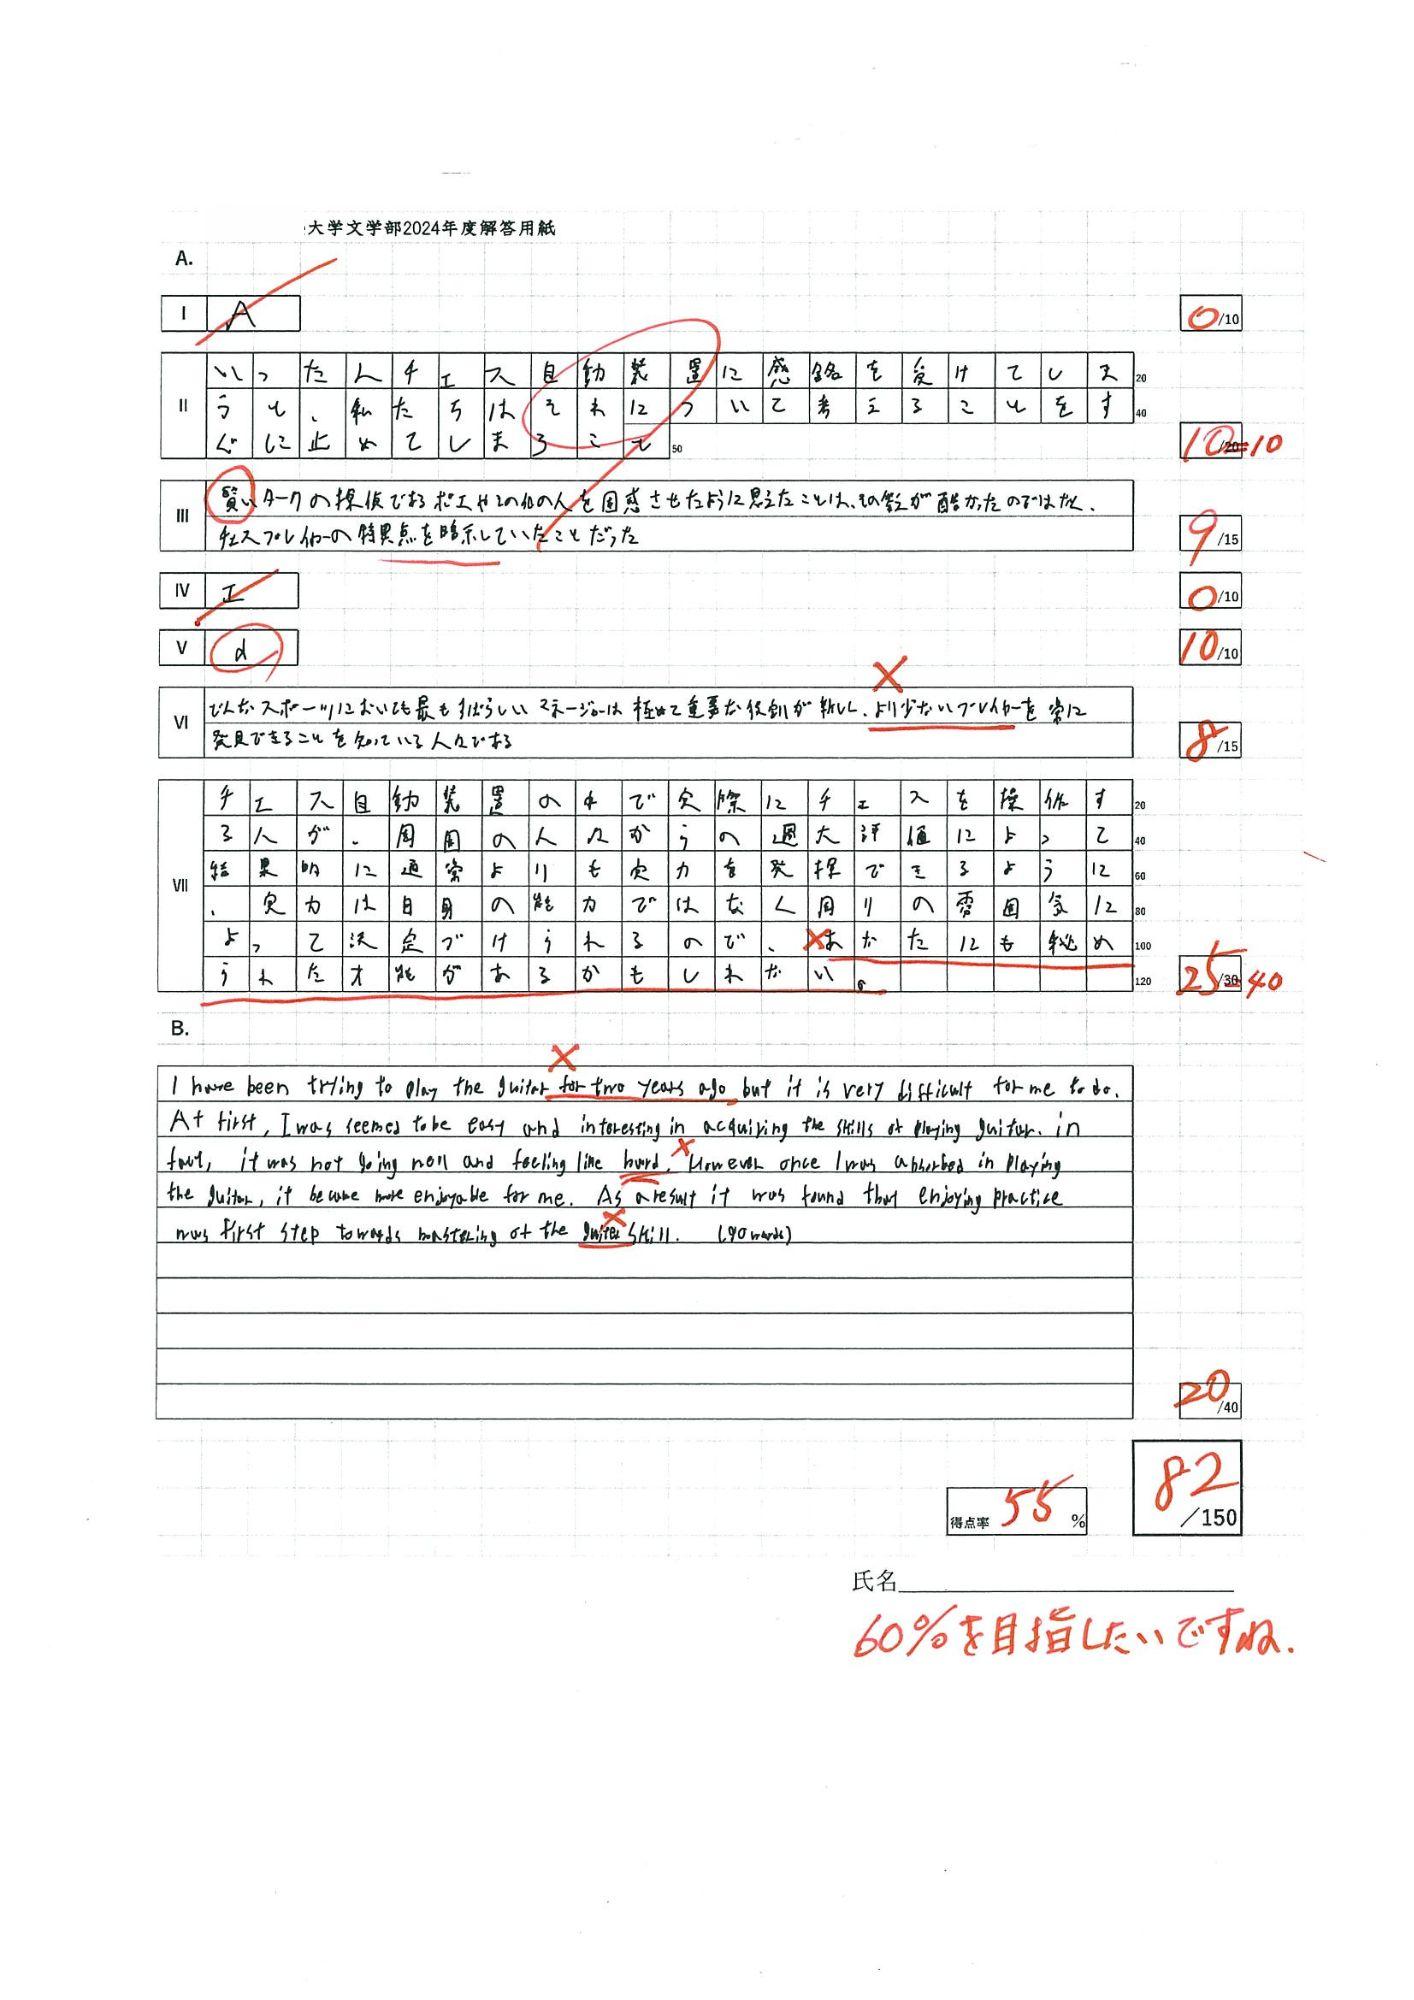 大学文学部2024年度解答用紙
A.
I A 0/10
II いったんチェス自動装置に感銘を受けてしま 20
うと、私たちはそれについて考えることをす 40
ぐに止めてしまうこと 50 10/20=10
III 賢いタークの探偵であるポエやその他の人を困惑させたように思えたことは、その答えが酷かったのではなく、
チェスプレイヤーの特異点を暗示していたことだった 9/15
IV エ 0/10
V d 10/10
VI どんなスポーツにおいても最もすばらしいマネージャーは極めて重要な役割が 、より少ないプレイヤーを常に
発見できることを知っている人々である 8/15
VII チェス自動装置の中で実際にチェスを操作す 20
る人が、周囲の人々からの過大評価によって 40
結果的に通常よりも実力を発揮できるように 60
、実力は自身の能力ではなく周りの雰囲気に 80
よって決定づけられるので、あなたにも秘め 100
られた才能があるかもしれない。 120 25/30=40
B.
I have been trying to play the guitar for two years ago but it is very difficult for me to do.
At first, I was seemed to be easy and interesting in acquiring the skills of playing guitar. in
fact, it was not going well and feeling like hurd. However once I was absorbed in playing
the guitar, it became more enjoyable for me. As a result it was found that enjoying practice
was first step towards mastering of the guiter skill. (90 words)
20/40
得点率 55 %
82/150
氏名
60%を目指したいですね.